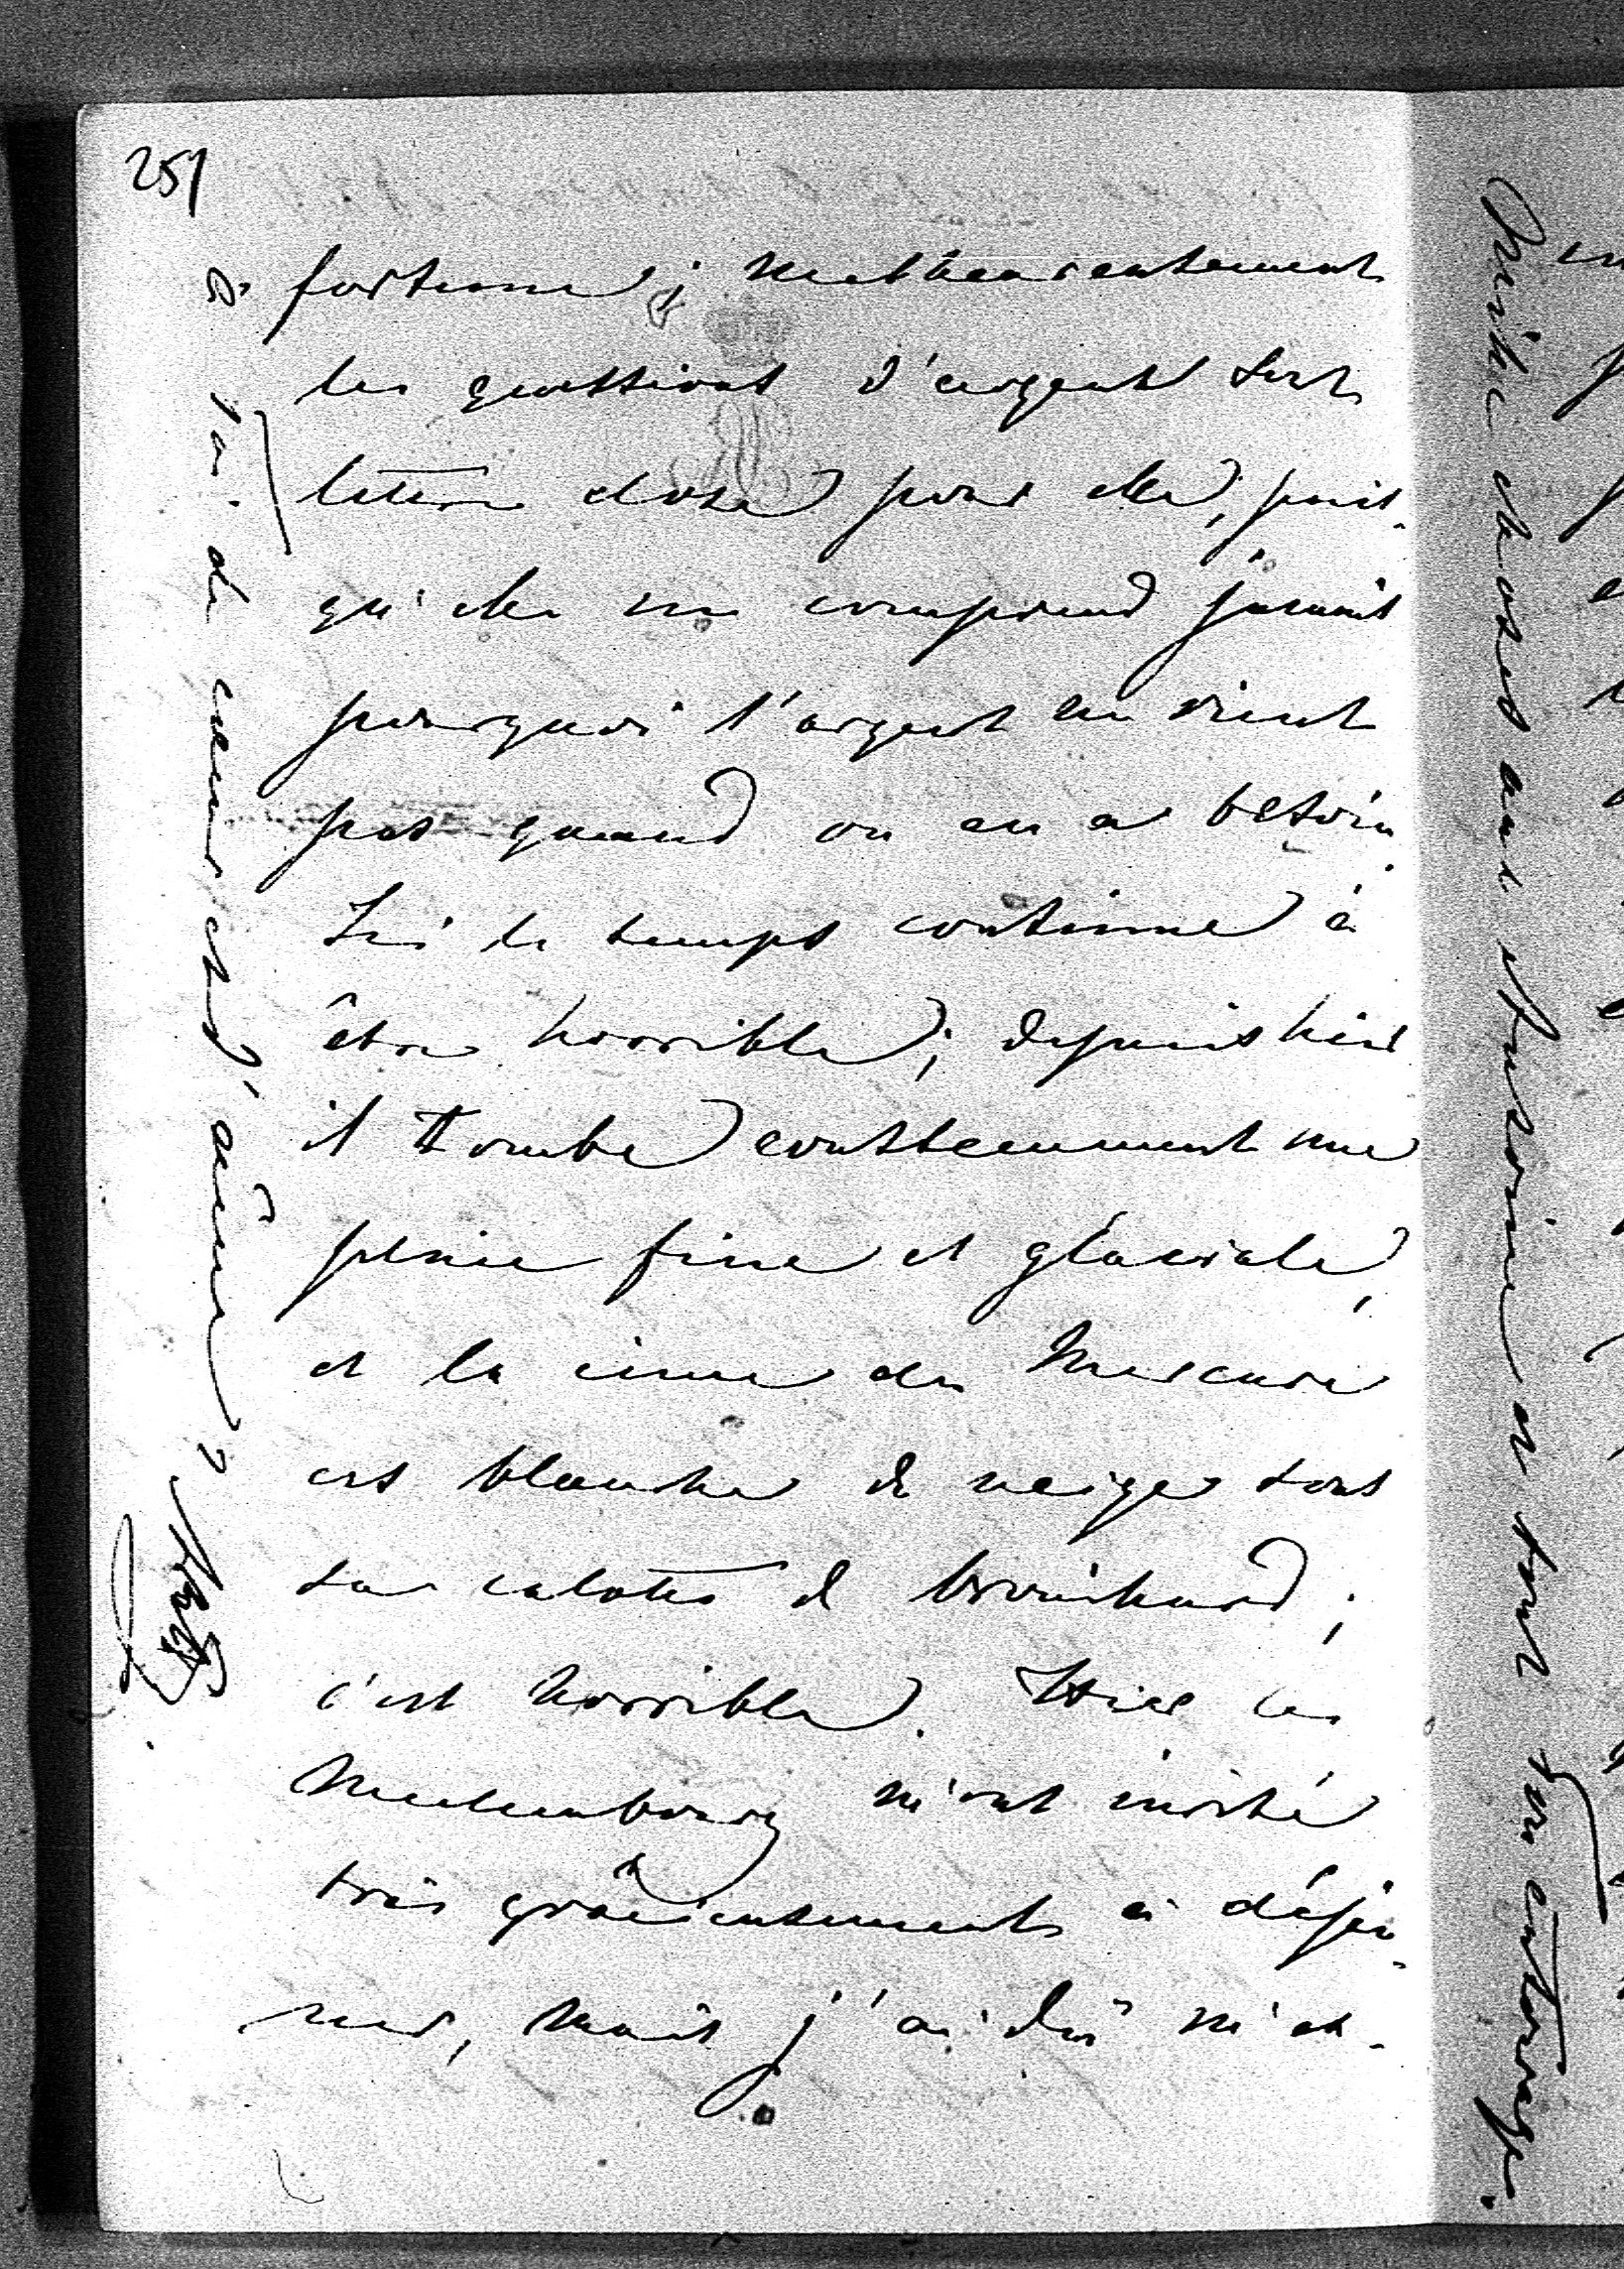 251
fortune; malheureusement
les questions d'argent sont
lettre close pour elle, puis-
qu'elle ne comprend jamais
pourquoi l'argent ne vient
pas quand on en a besoin.
Ici le temps continue à
être horrible; depuis hier
il tombe constamment une
pluie fine et glaciale,
et la cime du Mercure
est blanche de neige sous
sa calotte de brouillard;
c'est horrible. Hier les
Meclembourg m'ont invité
très grâcieusement à déjeu-
ner, mais j'ai dû m'ex-
à toi de cœur et d'âme,
Mille choses aux et tout l'entourage.